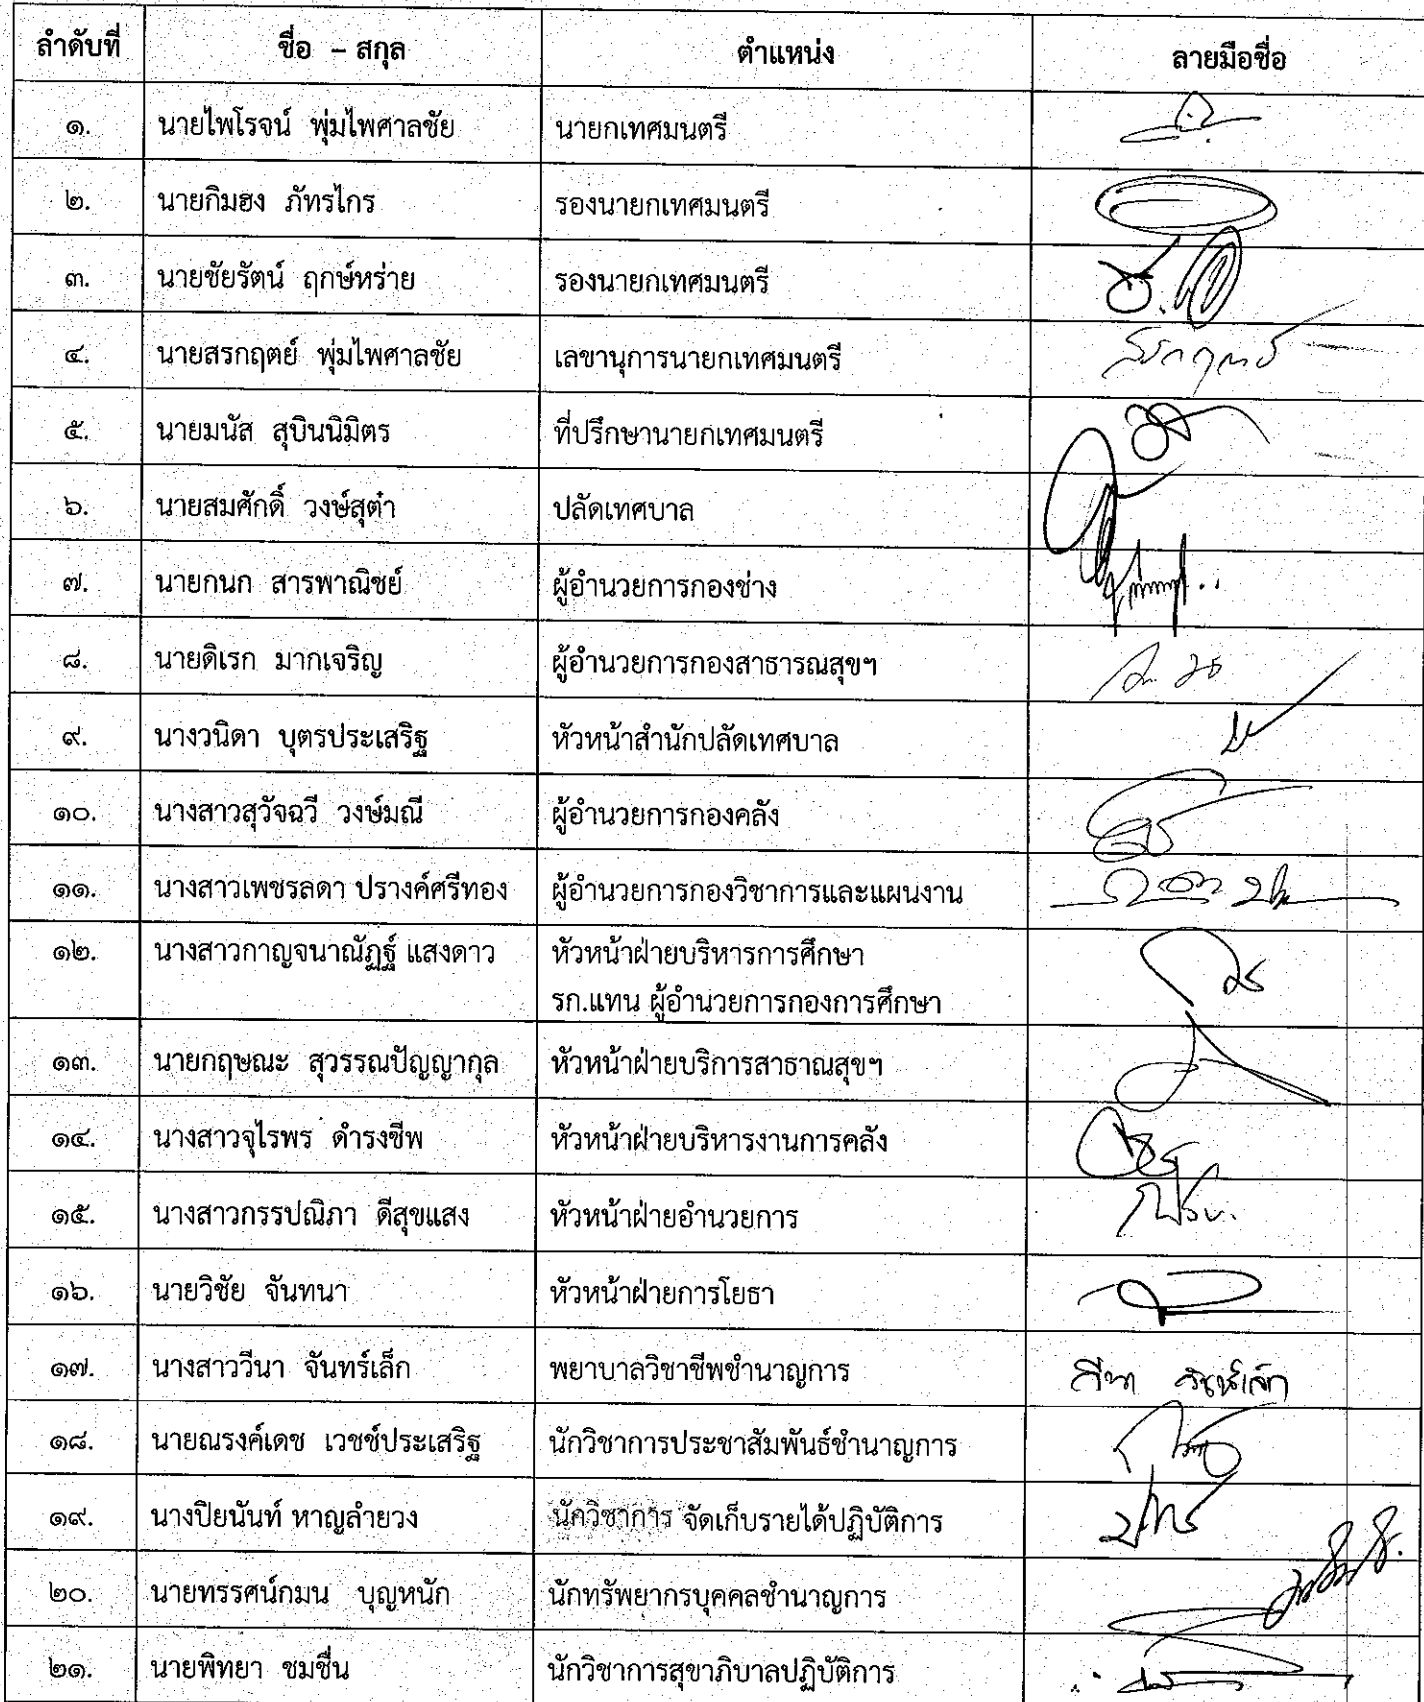 ลำดับที่ ชื่อ - สกุล ตำแหน่ง ลายมือชื่อ
๑. นายไพโรจน์ พุ่มไพศาลชัย นายกเทศมนตรี
๒. นายกิมฮง ภัทรไกร รองนายกเทศมนตรี
๓. นายชัยรัตน์ ฤกษ์หร่าย รองนายกเทศมนตรี
๔. นายสรกฤตย์ พุ่มไพศาลชัย เลขานุการนายกเทศมนตรี
๕. นายมนัส สุบินนิมิตร ที่ปรึกษานายกเทศมนตรี
๖. นายสมศักดิ์ วงษ์สุต๋า ปลัดเทศบาล
๗. นายกนก สารพาณิชย์ ผู้อำนวยการกองช่าง
๘. นายดิเรก มากเจริญ ผู้อำนวยการกองสาธารณสุขฯ
๙. นางวนิดา บุตรประเสริฐ หัวหน้าสำนักปลัดเทศบาล
๑๐. นางสาวสุวัจฉวี วงษ์มณี ผู้อำนวยการกองคลัง
๑๑. นางสาวเพชรลดา ปรางค์ศรีทอง ผู้อำนวยการกองวิชาการและแผนงาน
๑๒. นางสาวกาญจนาณัฏฐ์ แสงดาว หัวหน้าฝ่ายบริหารการศึกษา
รก.แทน ผู้อำนวยการกองการศึกษา
๑๓. นายกฤษณะ สุวรรณปัญญากุล หัวหน้าฝ่ายบริการสาธาณสุขฯ
๑๔. นางสาวจุไรพร ดำรงชีพ หัวหน้าฝ่ายบริหารงานการคลัง
๑๕. นางสาวกรรปณิภา ดีสุขแสง หัวหน้าฝ่ายอำนวยการ
๑๖. นายวิชัย จันทนา หัวหน้าฝ่ายการโยธา
๑๗. นางสาววีนา จันทร์เล็ก พยาบาลวิชาชีพชำนาญการ
๑๘. นายณรงค์เดช เวชช์ประเสริฐ นักวิชาการประชาสัมพันธ์ชำนาญการ
๑๙. นางปิยนันท์ หาญลำยวง นักวิชาการ จัดเก็บรายได้ปฏิบัติการ
๒๐. นายทรรศน์กมน บุญหนัก นักทรัพยากรบุคคลชำนาญการ
๒๑. นายพิทยา ชมชื่น นักวิชาการสุขาภิบาลปฏิบัติการ